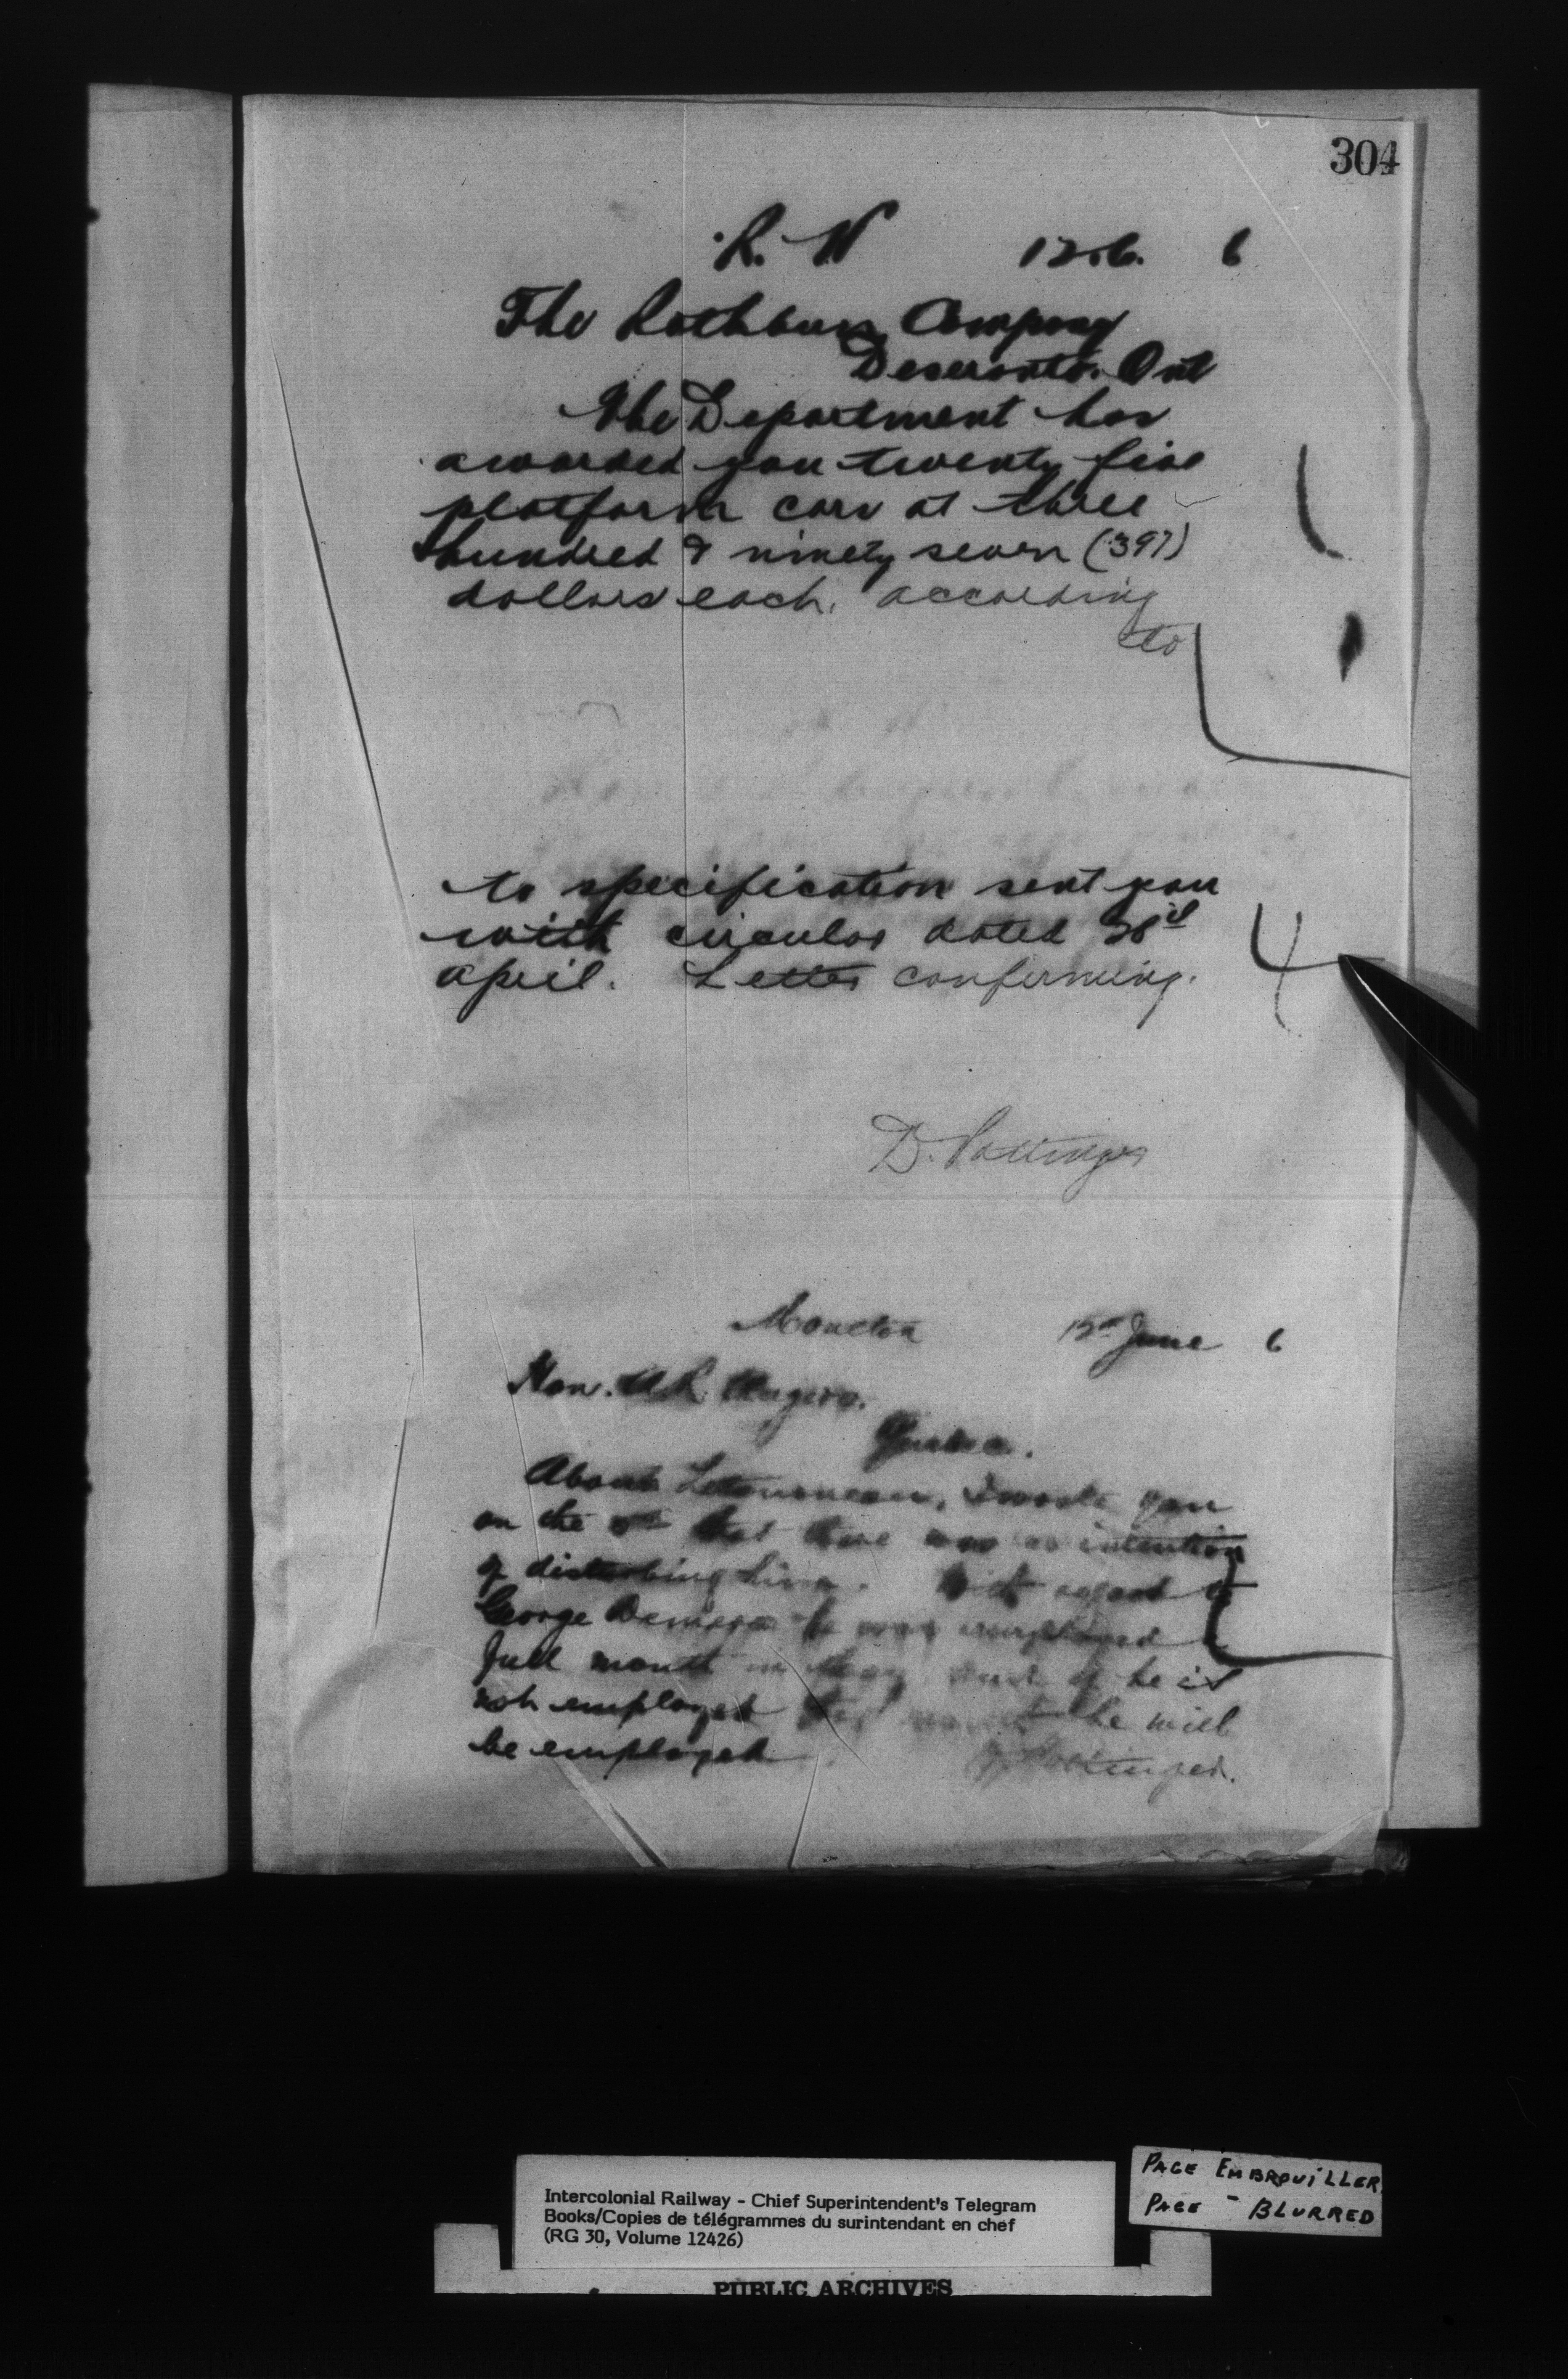 304
R. W 12.6. 6
The Rathbun Company
Deseronto. Ont
The Department has
awarded you twenty five
platform cars at three
hundred & ninety seven (397)
dollars each. according
to
to specification sent you
with circular dated
april. Letter confirming.
D. Pottinger
Moncton 12th June 6
Hon.
Quebec.
About Letourneau, I wrote you
on the that there was no intention
of disturbing him. With regard to
George he was employed
full month in May and if he is
not employed this month he will
be employed
D. Pottinger.
Intercolonial Railway - Chief Superintendent's Telegram
Books/Copies de télégrammes du surintendant en chef
(RG 30, Volume 12426)
PAGE EMBROUILLER
PAGE - BLURRED
PUBLIC ARCHIVES